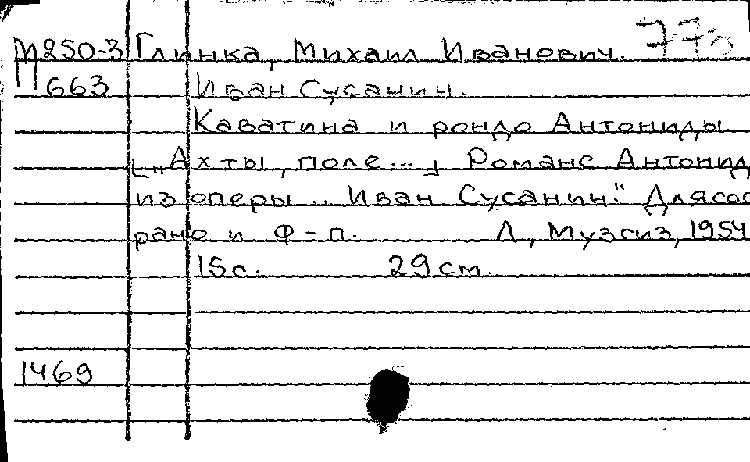 М250-3 Глинка, Михаил Иванович. 773
П663 Иван Сусанин.
Каватина и рондо Антониды
[„Ах ты, поле...] Романс Антонид
из оперы „Иван Сусанин." Для соп
рано и ф-п. Л, Музгиз, 1954
15с. 29см
1469